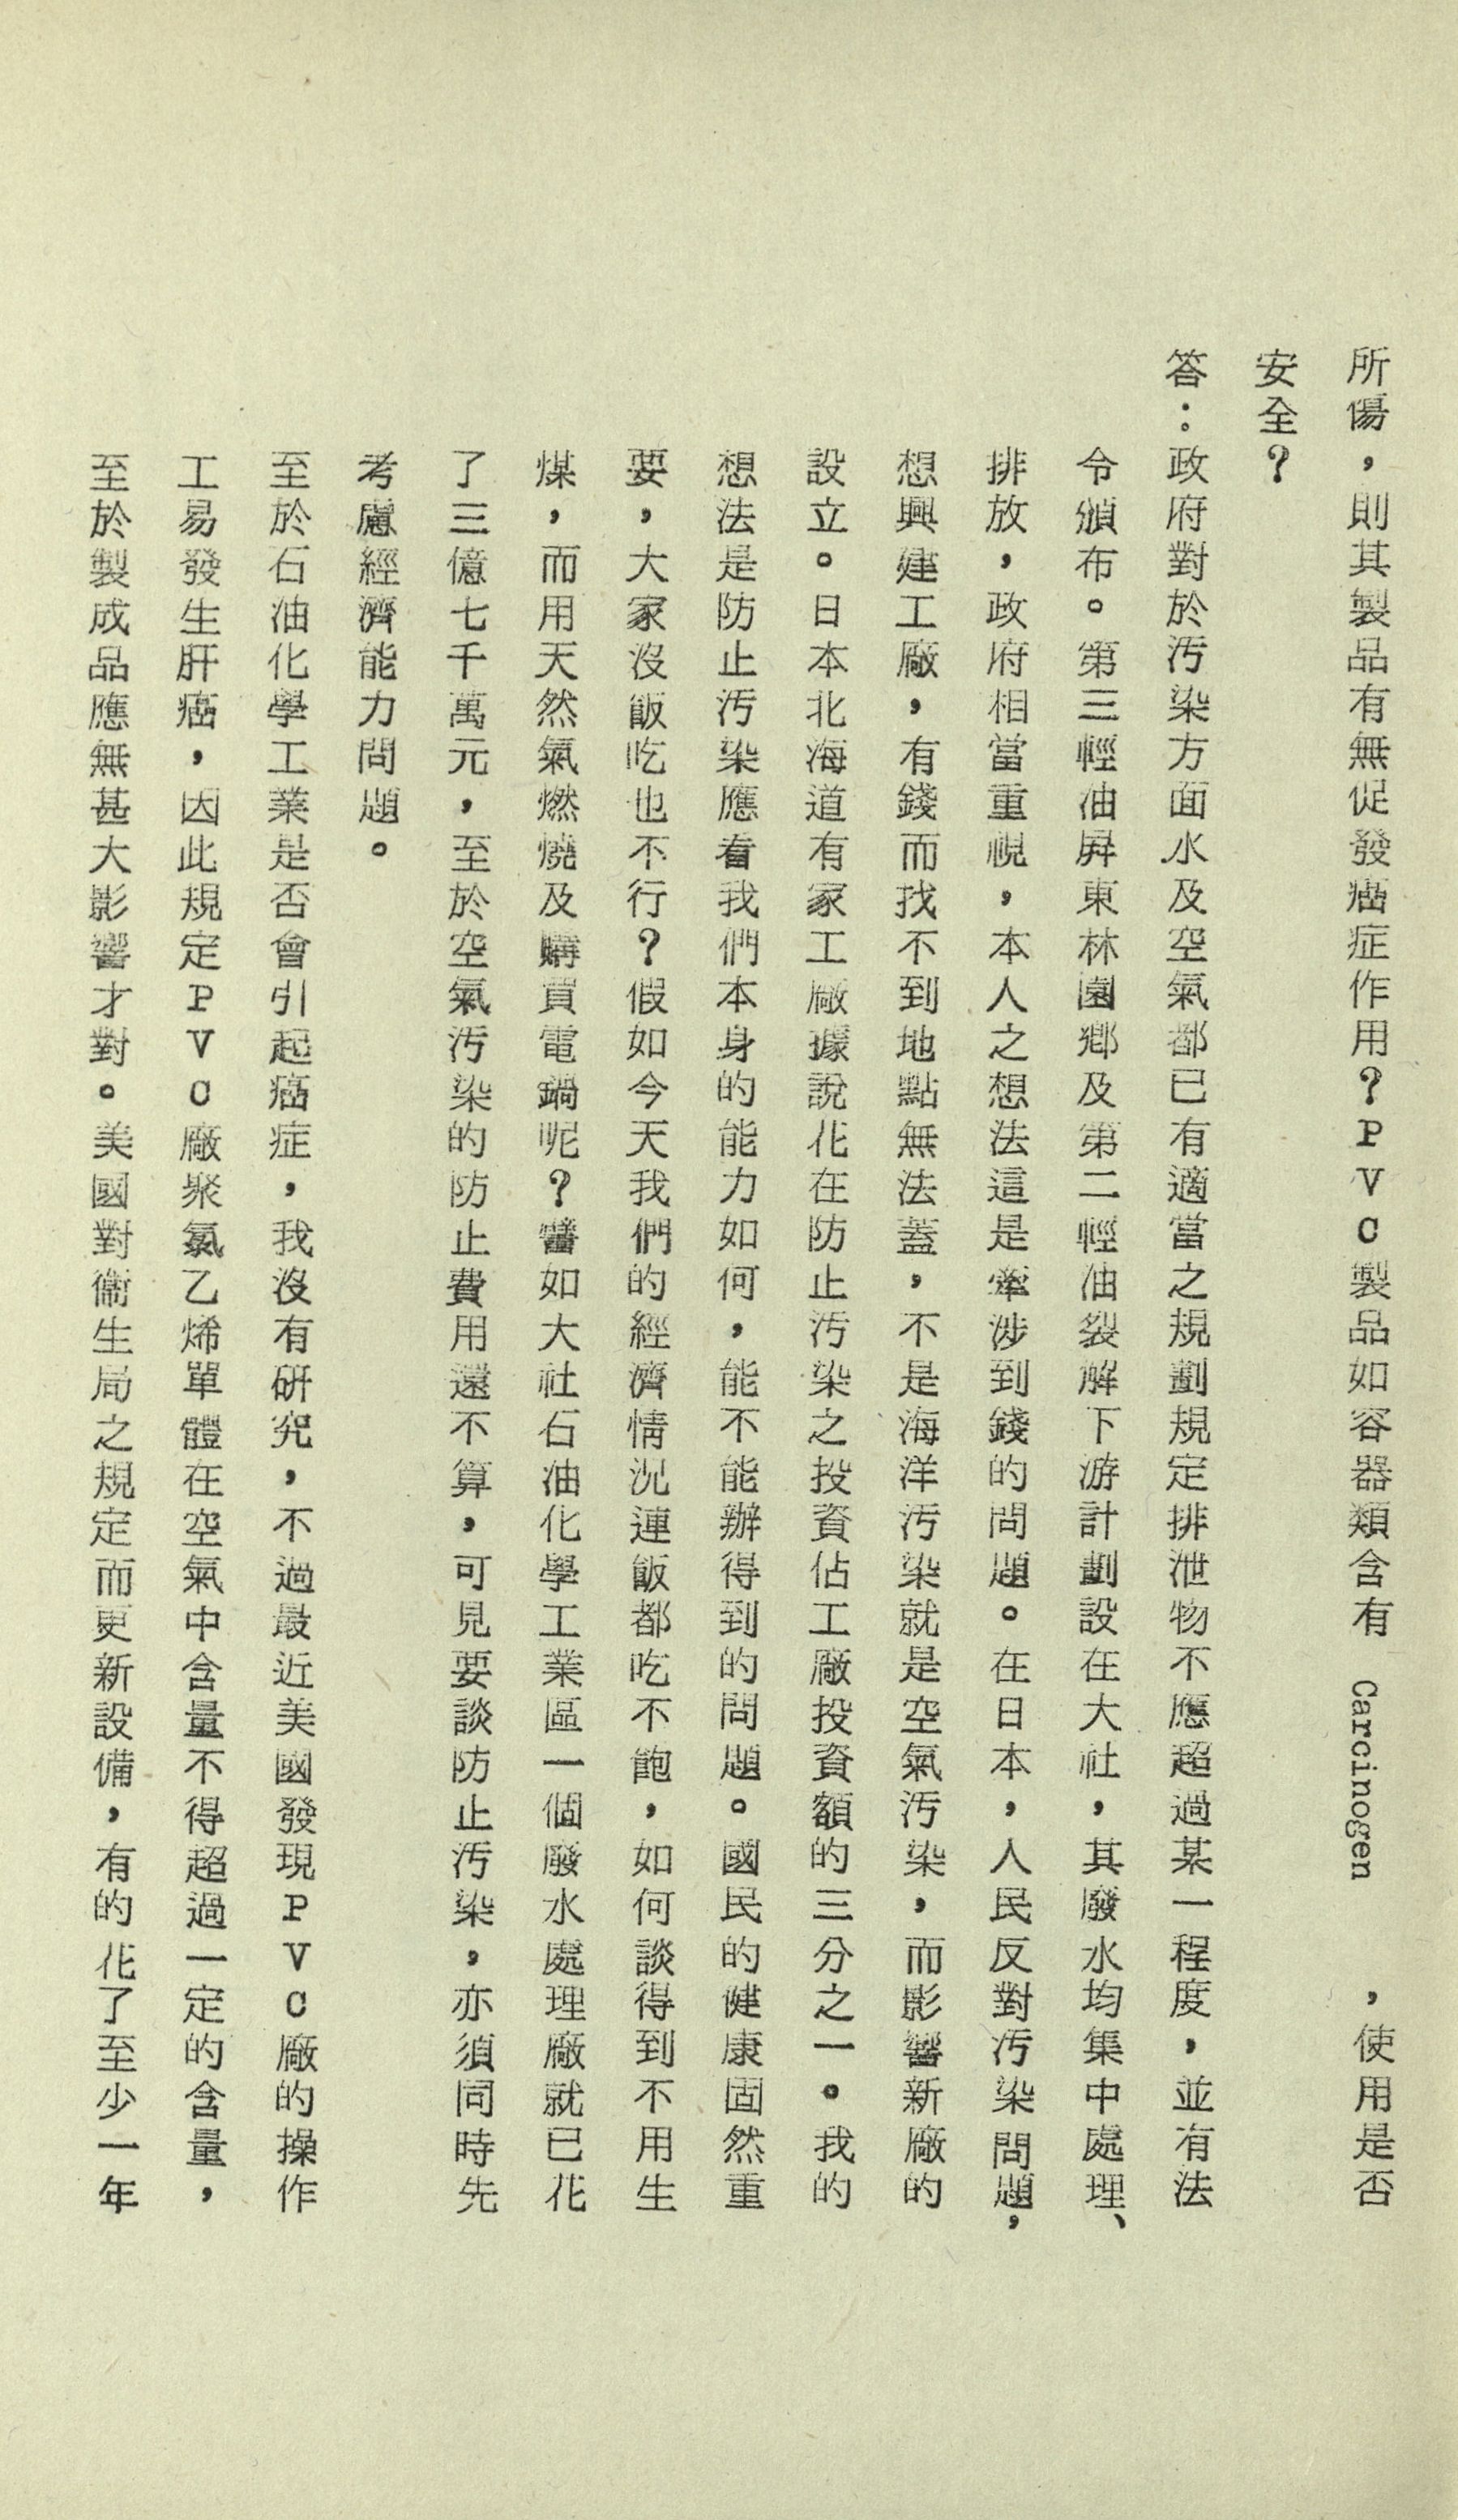 所傷，則其製品有無促發癌症作用？PVC製品如容器類含有 Carcinogen ，使用是否
安全？
答：政府對於汚染方面水及空氣都已有適當之規劃規定排泄物不應超過某一程度，並有法
令頒布。第三輕油屏東林園鄉及第二輕油裂解下游計劃設在大社，其廢水均集中處理、
排放，政府相當重視，本人之想法這是牽涉到錢的問題。在日本，人民反對汚染問題，
想興建工廠，有錢而找不到地點無法蓋，不是海洋汚染就是空氣汚染，而影響新廠的
設立。日本北海道有家工廠據說花在防止汚染之投資佔工廠投資額的三分之一。我的
想法是防止汚染應看我們本身的能力如何，能不能辦得到的問題。國民的健康固然重
要，大家沒飯吃也不行？假如今天我們的經濟情況連飯都吃不飽，如何談得到不用生
煤，而用天然氣燃燒及購買電鍋呢？譬如大社石油化學工業區一個廢水處理廠就已花
了三億七千萬元，至於空氣汚染的防止費用還不算，可見要談防止汚染，亦須同時先
考慮經濟能力問題。
至於石油化學工業是否會引起癌症，我沒有研究，不過最近美國發現PVC廠的操作
工易發生肝癌，因此規定PVC廠聚氯乙烯單體在空氣中含量不得超過一定的含量，
至於製成品應無甚大影響才對。美國對衞生局之規定而更新設備，有的花了至少一年